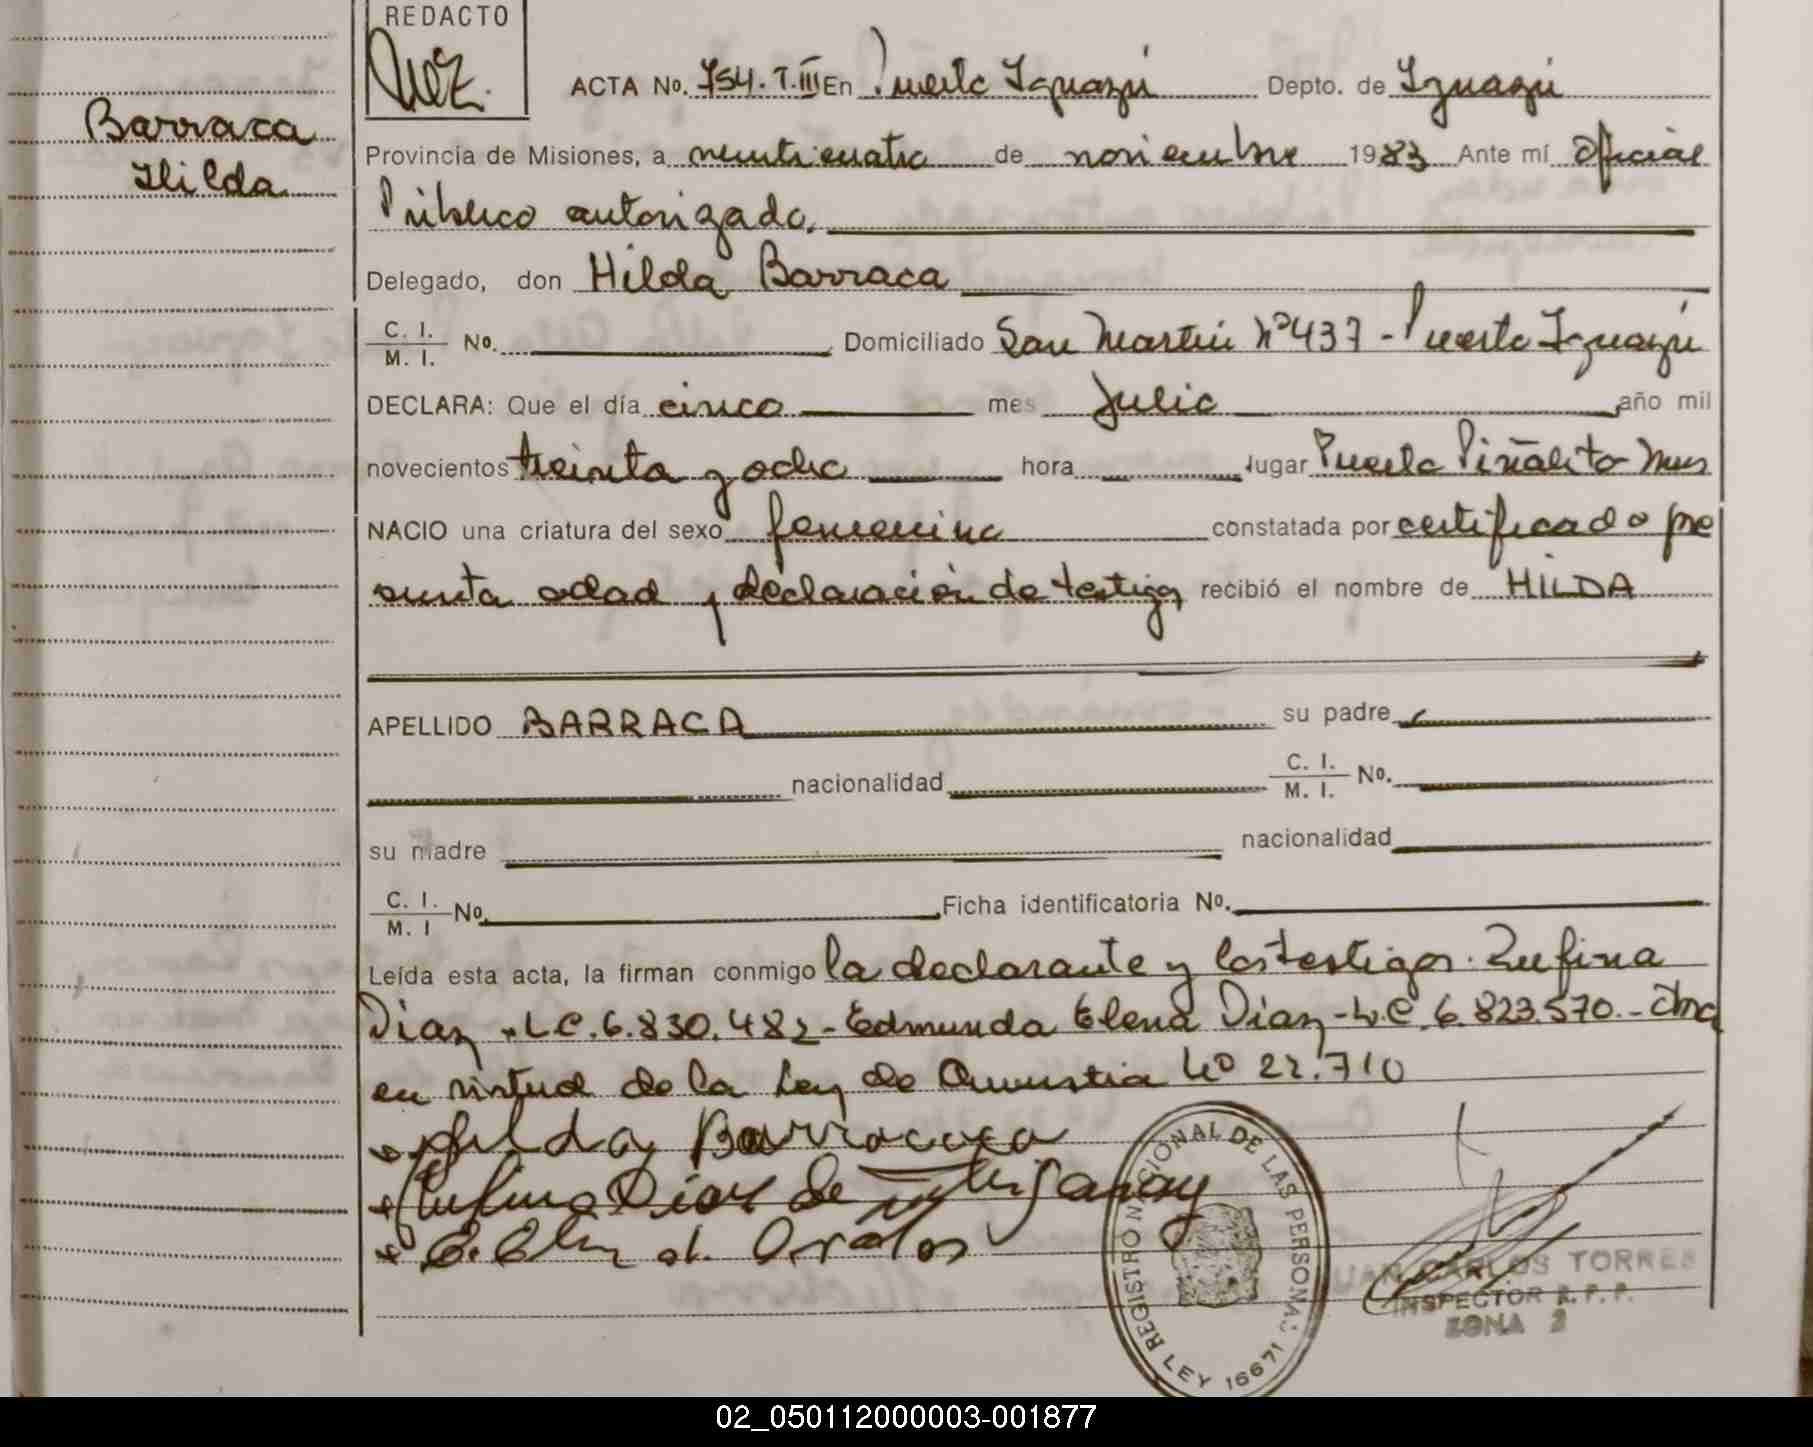 REDACTO
Barraca
Hilda
ACTA No. 754. T. III En Puerto Iguazú Depto. de Iguazú
Provincia de Misiones, a veinticuatro de noviembre 1983 Ante mí Oficial
Público autorizado.
Delegado, don Hilda Barraca
C. I. / M. I. No. Domiciliado San Martín Nº 437 - Puerto Iguazú
DECLARA: Que el día cinco mes Julio año mil
novecientos treinta y ocho hora lugar Puerto Piñalito Mnes
NACIO una criatura del sexo femenino constatada por certificado pre
sunta edad y declaración de testigos recibió el nombre de HILDA
APELLIDO BARRACA su padre
nacionalidad C. I. / M. I. No.
su madre nacionalidad
C. I. / M. I No. Ficha identificatoria No.
Leída esta acta, la firman conmigo la declarante y los testigos. Rufina
Diaz - L.C. 6.830.482 - Edmunda Elena Diaz - L.C. 6.823.570. -
en virtud de la Ley de Amnistia Nº 22.710
Hilda Barracaca
Rufina Diaz de
REGISTRO NACIONAL DE LAS PERSONAS
LEY 16671
JUAN CARLOS TORRES
INSPECTOR R. P. P.
ZONA 2
02_050112000003-001877